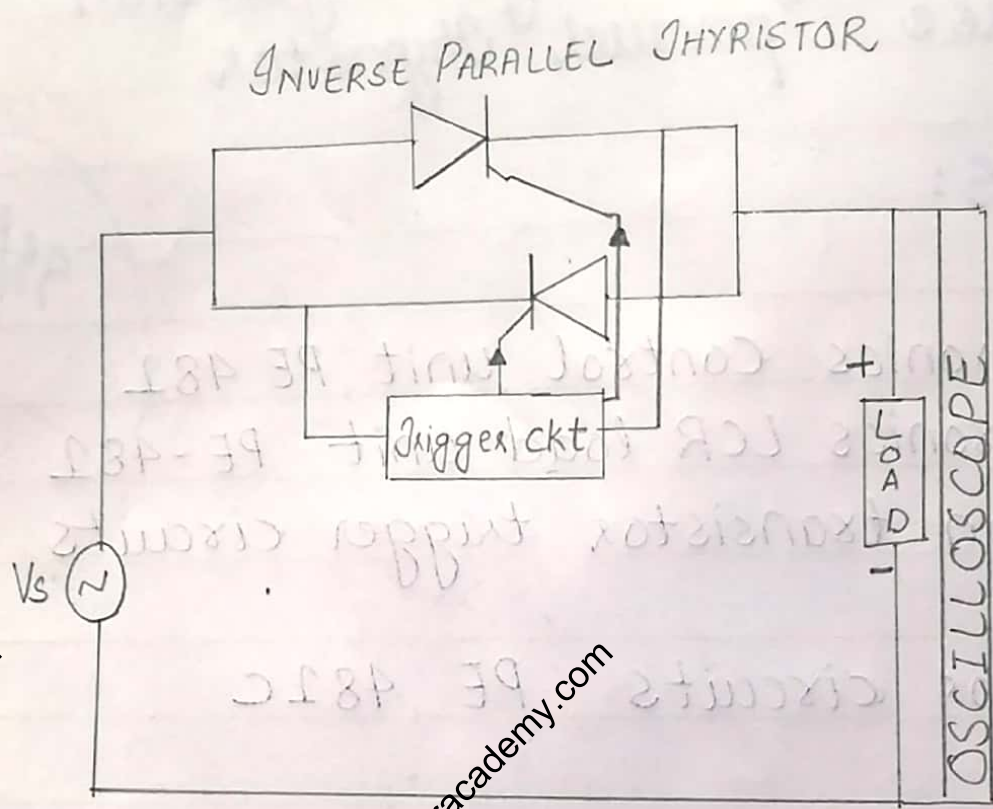 INVERSE PARALLEL THYRISTOR
Trigger ckt
Vs
+
LOAD
-
OSCILLOSCOPE
racademy.com